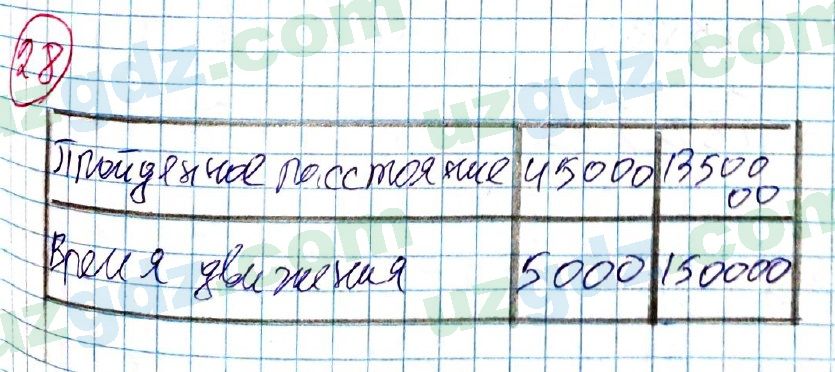 28
Пройденное расстояние 45000 13500
00
Время движения 5000 150000
uzgdz.com
uzgdz.com
uzgdz.com